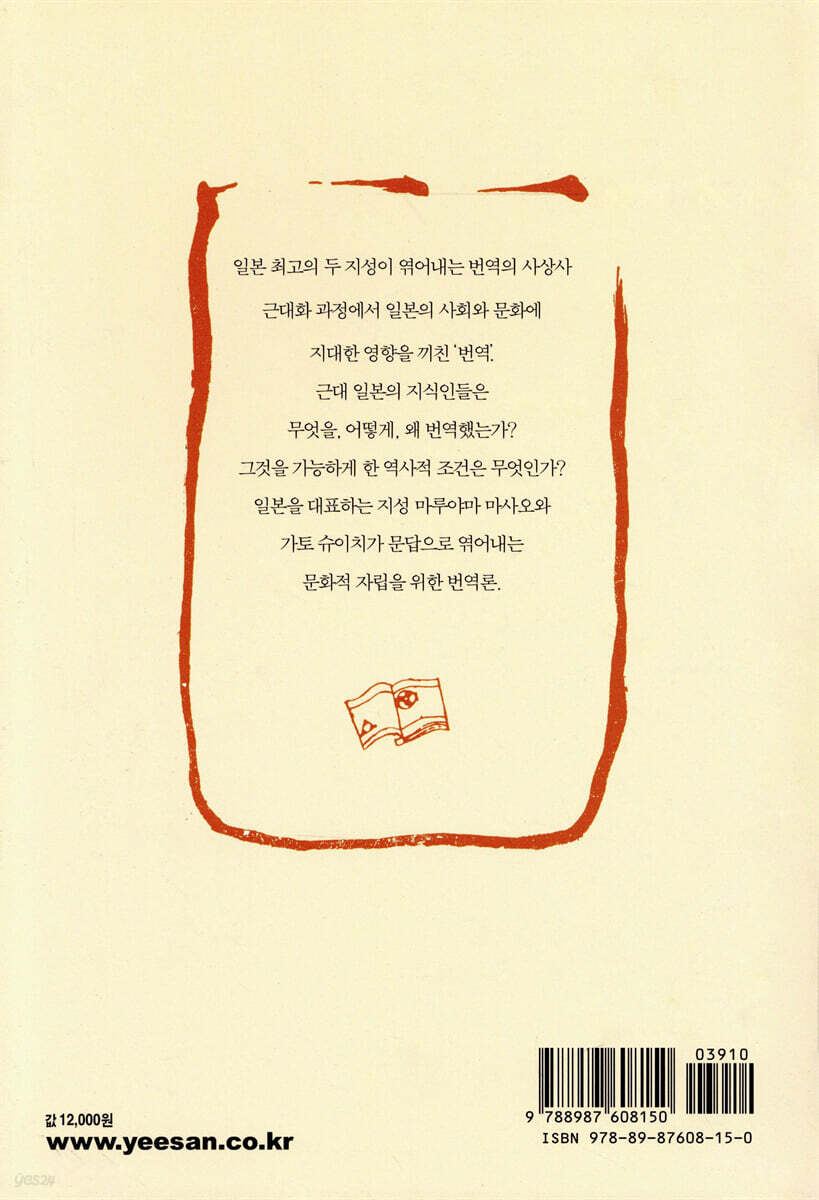 일본 최고의 두 지성이 엮어내는 번역의 사상사
근대화 과정에서 일본의 사회와 문화에
지대한 영향을 끼친 ‘번역’.
근대 일본의 지식인들은
무엇을, 어떻게, 왜 번역했는가?
그것을 가능하게 한 역사적 조건은 무엇인가?
일본을 대표하는 지성 마루야마 마사오와
가토 슈이치가 문답으로 엮어내는
문화적 자립을 위한 번역론.
03910
9 788987 608150
ISBN 978-89-87608-15-0
값 12,000원
www.yeesan.co.kr
yes24